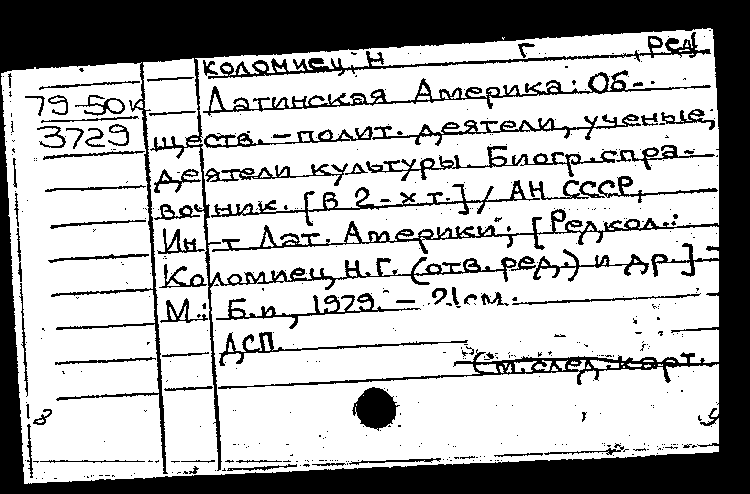 Коломиец, Н Г , ред
79-50к Латинская Америка: Об-
3729 ществ.-полит. деятели, ученые,
деятели культуры. Биогр. спра-
вочник. [В 2-х т.] / АН СССР,
Ин-т Лат. Америки; [Редкол.:
Коломиец, Н.Г. (отв. ред.) и др.] -
М.: Б.и., 1979. - 21см.
ДСП.
См. след. карт.
8